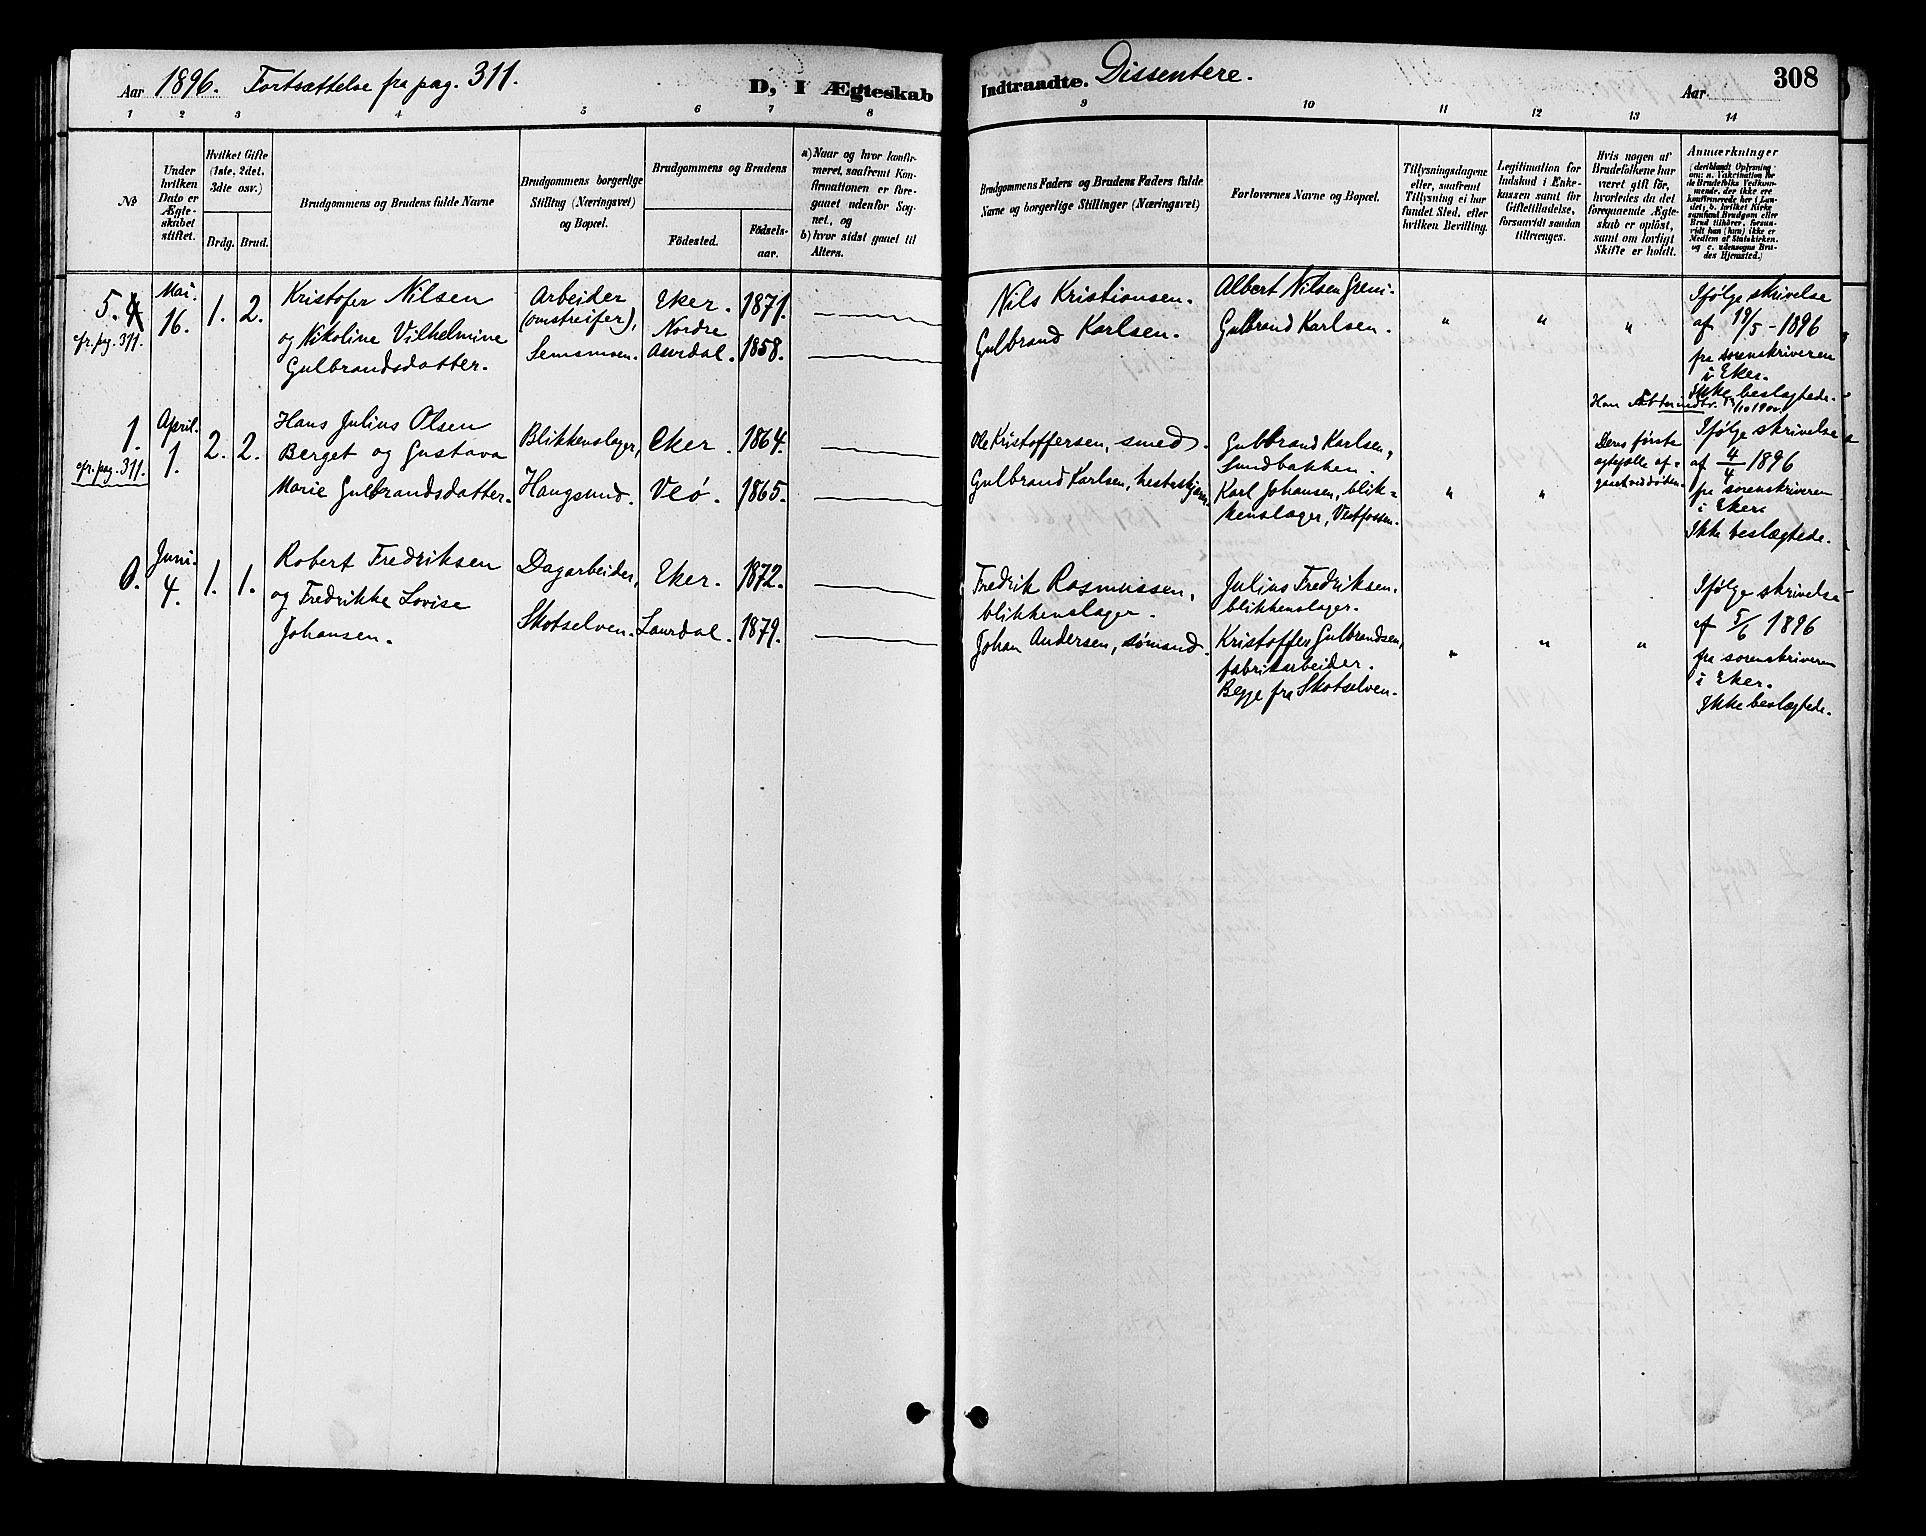 Aar 1896. Fortsættelse fra pag. 311.
D, I Ægteskab
Indtraadte. Dissentere.
Aar
308
1 2 3 4 5 6 7 8 9 10 11 12 13 14
No
Under
hvilken
Dato er
Ægte-
skabet
stiftet.
Hvilket Gifte
(1ste, 2det,
3die osv.)
Brdg. Brud.
Brudgommens og Brudens fulde Navne
Brudgommens borgerlige
Stilling (Næringsvei)
og Bopæl.
Brudgommens og Brudens
Födested.
Födsels-
aar.
a) Naar og hvor konfir-
meret, saafremt Kon-
firmationen er fore-
gaaet udenfor Sog-
net, og
b) hvor sidst gaaet til
Alters.
Brudgommens Faders og Brudens Faders fulde
Navne og borgerlige Stillinger (Næringsvei)
Forlovernes Navne og Bopæl.
Tillysningsdagene
eller, saafremt
Tillysning ei har
fundet Sted, efter
hvilken Bevilling.
Legitimation for
Indskud i Enke-
kassen samt for
Giftetilladelse,
forsaavidt saadan
tiltrænges.
Hvis nogen af
Brudefolkene har
været gift för,
hvorledes da det
foregaaende Ægte-
skab er oplöst,
samt om lovligt
Skifte er holdt.
Anmærkninger
(deriblandt Oplysning
om: a. Vakcination for
de Brudefolks Vedkom-
mende, der ikke ere
konfirmerede her i Lan-
det, b. hvilket Kirke
samfund Brudgom eller
Brud tilhörer, forsaa-
vidt han (hun) ikke er
Medlem af Statskirken,
og c. udensogns Bru-
des Hjemsted.)
5.
cfr. pag. 311.
Mai.
16.
1. 2.
Kristofer Nilsen
og Nikoline Vilhelmine
Gulbrandsdatter.
Arbeider
(omstreifer),
Semsmoen.
Eker.
Nordre
Aurdal.
1871.
1858.
Nils Kristiansen.
Gulbrand Karlsen.
Albert Nilsen Greni.
Gulbrand Karlsen.
" " "
Ifølge skrivelse
af 19/5 - 1896
fra sorenskriveren
i Eker.
Ikke beslægtede.
1.
cfr. pag. 311.
April.
1.
2. 2.
Hans Julius Olsen
Berget og Gustava
Marie Gulbrandsdatter.
Blikkenslager,
Haugsund.
Eker.
Veö.
1864.
1865.
Ole Kristoffersen, smed.
Gulbrand Karlsen,
Gulbrand Karlsen,
Sundbakken.
Karl Johansen, blik-
kenslager, Vestfossen.
" "
Deres første
ægtefælle af-
gaaet ved døden.
Ifølge skrivelse
af 4/4 1896
fra sorenskriveren
i Eker.
Ikke beslægtede.
Juni.
4.
1. 1.
Robert Fredriksen
og Fredrikke Lovise
Johansen.
Dagarbeider,
Skotselven.
Eker.
Laurdal.
1872.
1879.
Fredrik Rasmussen,
blikkenslager.
Johan Andersen,
Julius Fredriksen.
blikkenslager.
Kristoffer Gulbrandsen,
fabrikarbeider.
Begge fra Skotselven.
" " "
Ifølge skrivelse
af 5/6 1896
fra sorenskriveren
i Eker.
Ikke beslægtede.